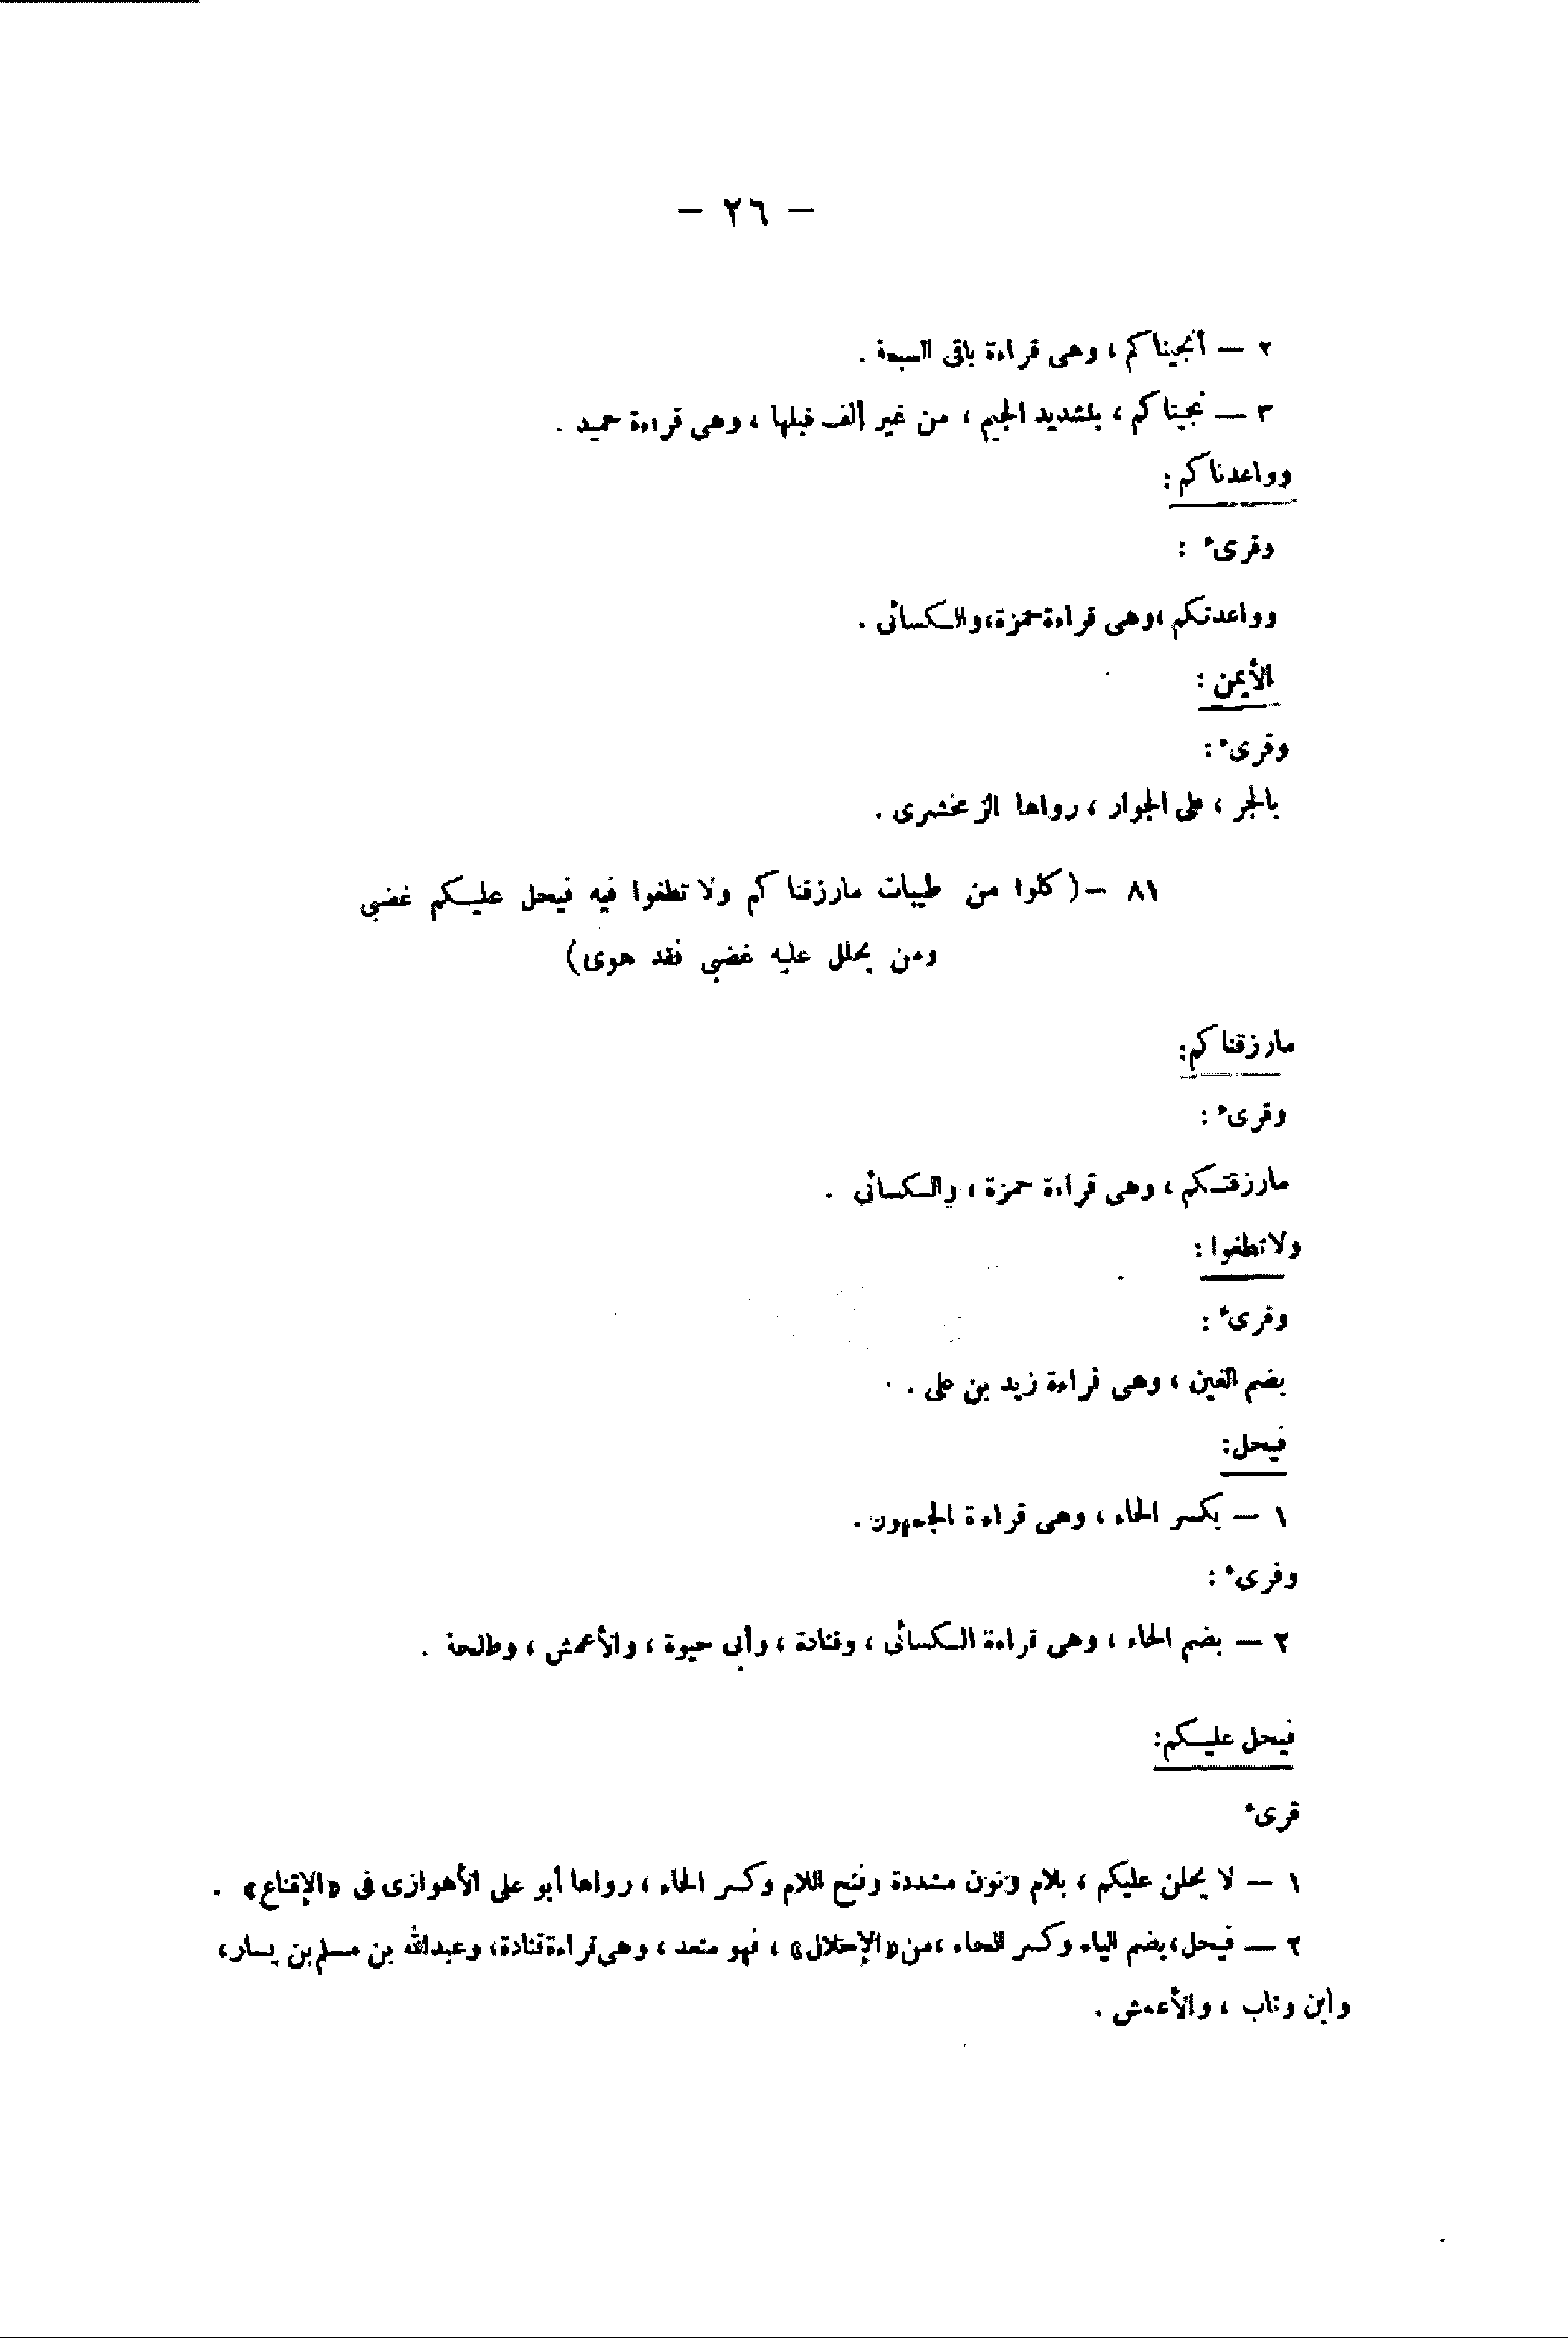 — ٢٦ —
٢ — أنجيناكم ، وهى قراءة باقى السبعة .
٣ — نجيناكم ، بتشديد الجيم ، من غير ألف قبلها ، وهى قراءة حميد .
وواعدناكم :
وقرىء :
وواعدتكم ، وهى قراءة حمزة ، والكسائى .
الأيمن :
وقرىء :
بالجر ، على الجوار ، رواها الزمخشرى .
٨١ – ( كلوا من طيبات مارزقناكم ولا تطغوا فيه فيحل عليكم غضبى
ومن يحلل عليه غضبى فقد هوى )
مارزقناكم :
وقرىء :
مارزقتكم ، وهى قراءة حمزة ، والكسائى .
ولا تطغوا :
وقرىء :
بضم الغين ، وهى قراءة زيد بن على .
فيحل :
١ — بكسر الحاء ، وهى قراءة الجمهور .
وقرىء :
٢ — بضم الحاء ، وهى قراءة الكسائى ، وقتادة ، وأبى حيوة ، والأعمش ، وطلحة .
فيحل عليكم :
قرىء
١ — لا يحلن عليكم ، بلام ونون مشددة وفتح اللام وكسر الحاء ، رواها أبو على الأهوازى فى « الإقناع » .
٢ — فيحل ، بضم الياء وكسر الحاء ، من « الإحلال » ، فهو متعد ، وهى قراءة قتادة ، وعبد الله بن مسلم بن يسار ،
وابن وثاب ، والأعمش .